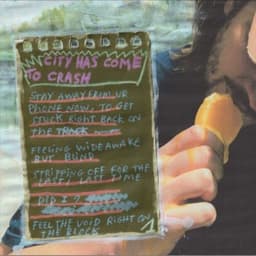 CITY HAS COME
TO CRASH
STAY AWAY FROM UR
PHONE NOW, TO GET
STUCK RIGHT BACK ON
THE TRACK
FEELING WIDE AWAKE
BUT BLIND
STRIPPING OFF FOR THE
LAST, LAST TIME
DID I ?
FEEL THE VOID RIGHT ON
THE BLOCK
1